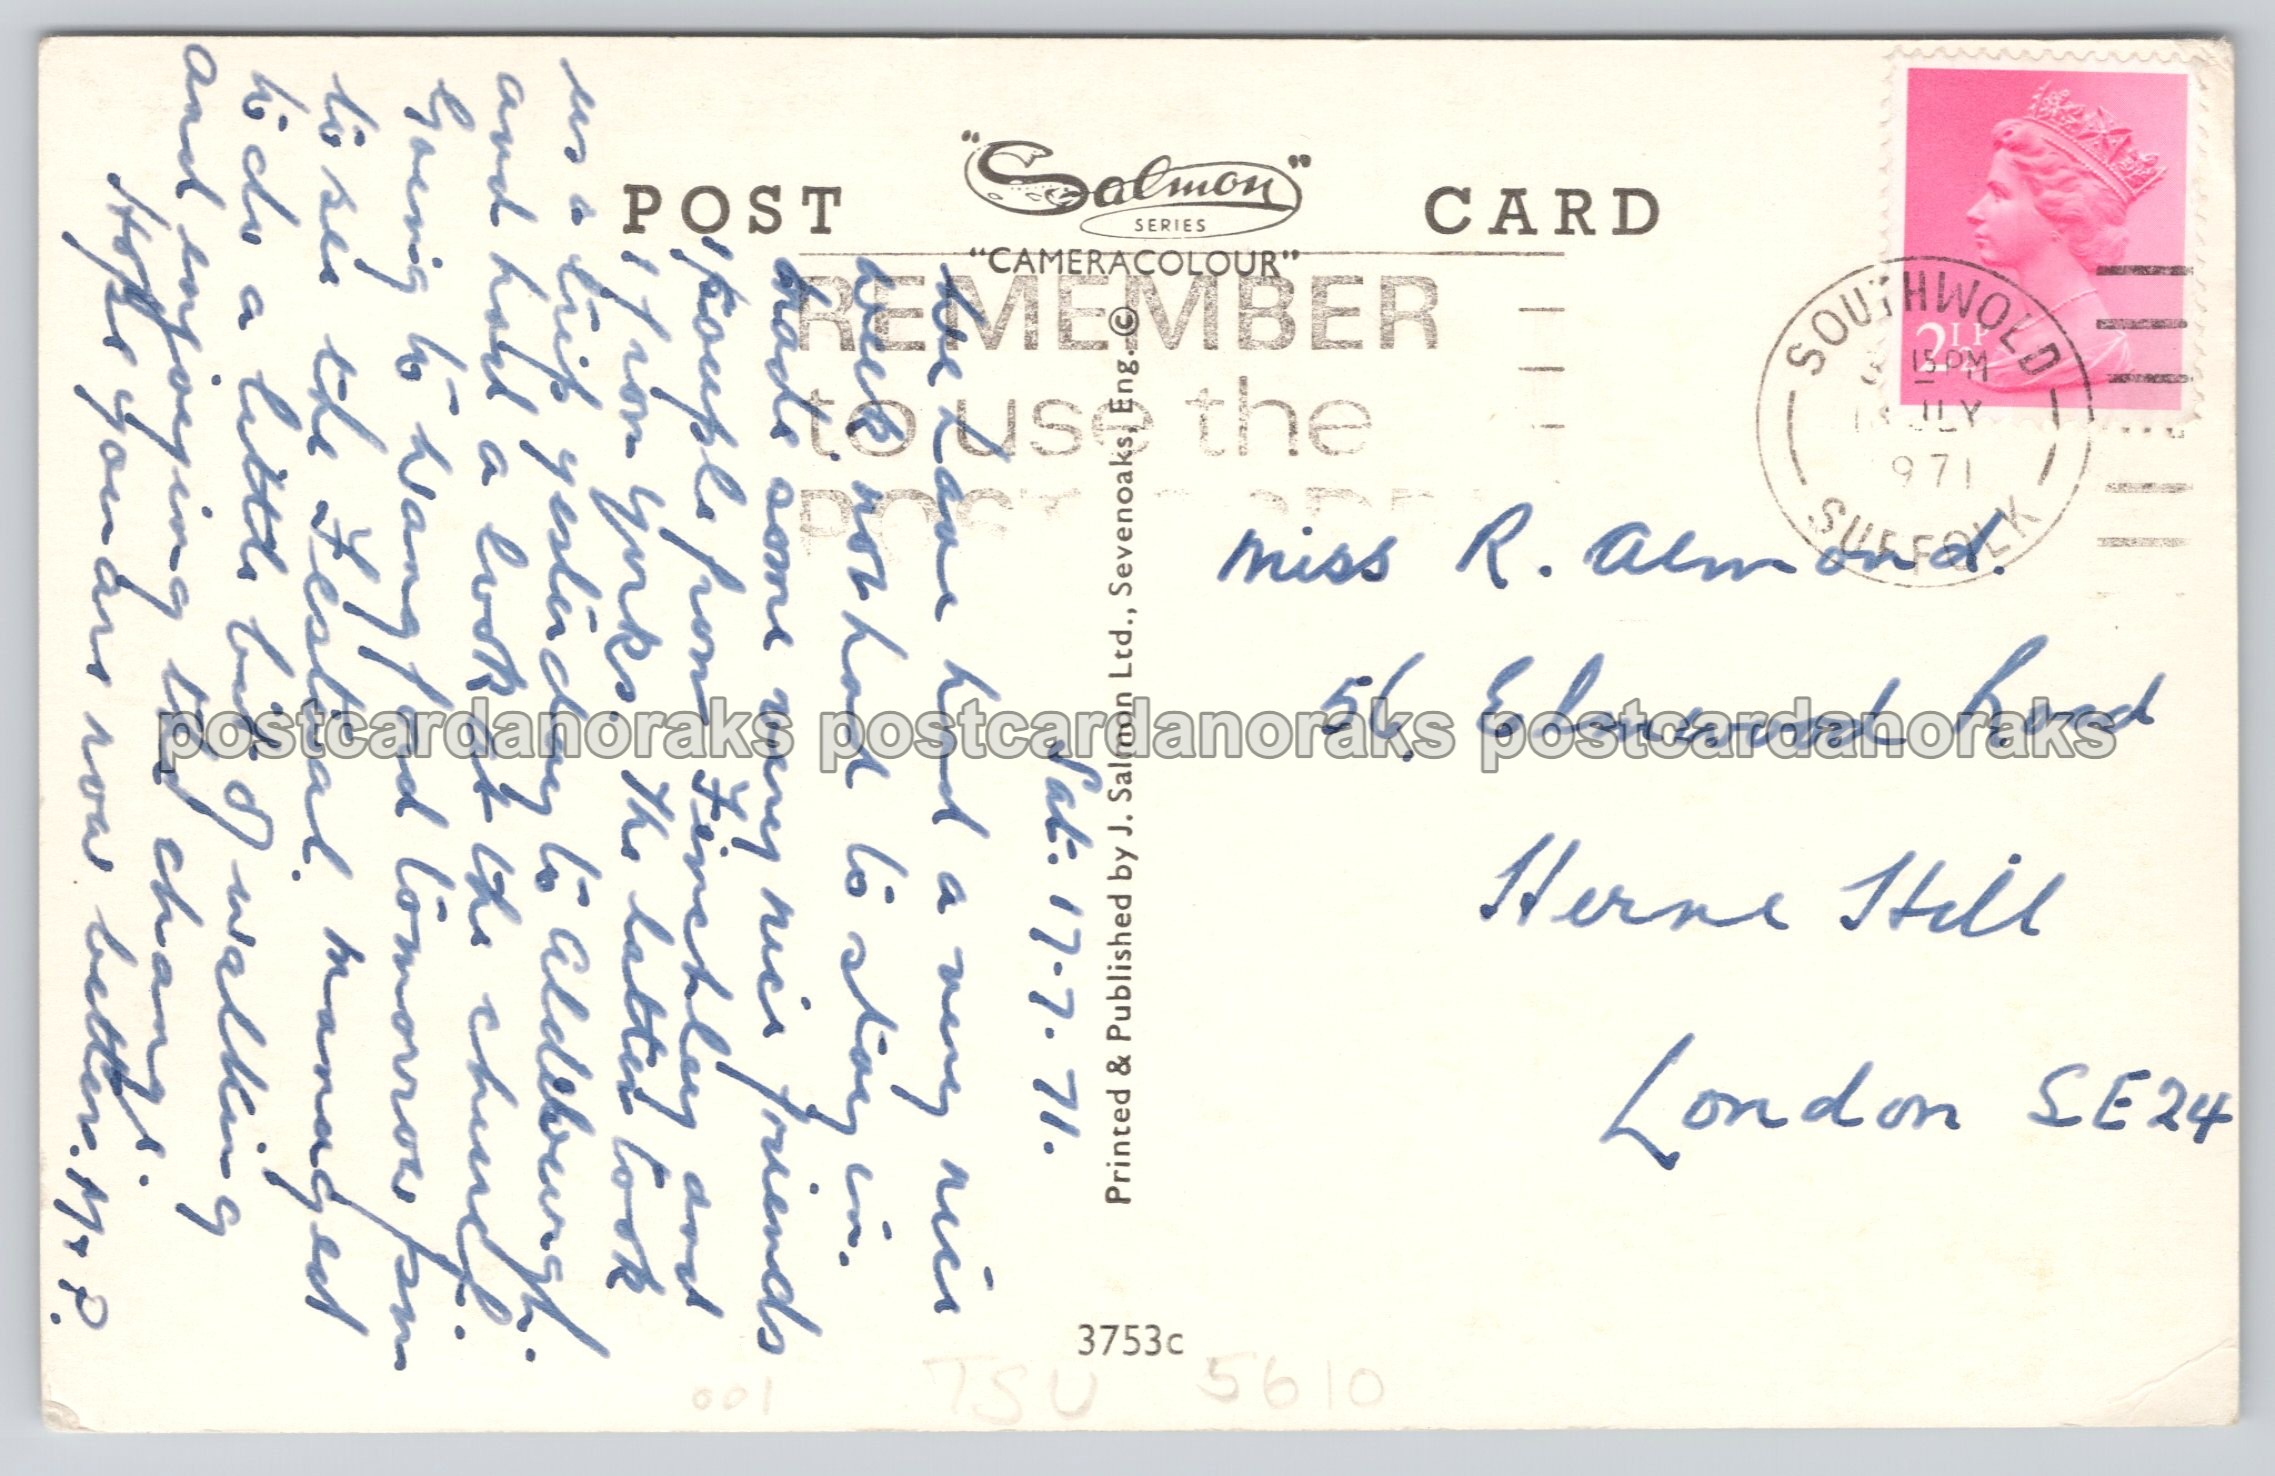 POST CARD
"Salmon"
SERIES
"CAMERACOLOUR"
REMEMBER
to use the
SOUTHWOLD
15 PM
JLY
971
SUFFOLK
2½P
Sat: 17-7.71.
We have had a very nice
week not had to stay in.
Made some very nice friends
1 couple from Finchley and
1 from Yorks. The latter took
us a trip yesterday to Aldeburgh.
and had a look at the church.
Going to Wangford tomorrow pm
to see the Festival. Managed
to do a little bit of walking
and enjoying the change.
Hope you are now better. M & P.
Miss R. Almond.
56. Elmwood Road
Herne Hill
London SE24
Printed & Published by J. Salmon Ltd., Sevenoaks, Eng. ©
3753c
001 TSU 5610
postcardanoraks postcardanoraks postcardanoraks